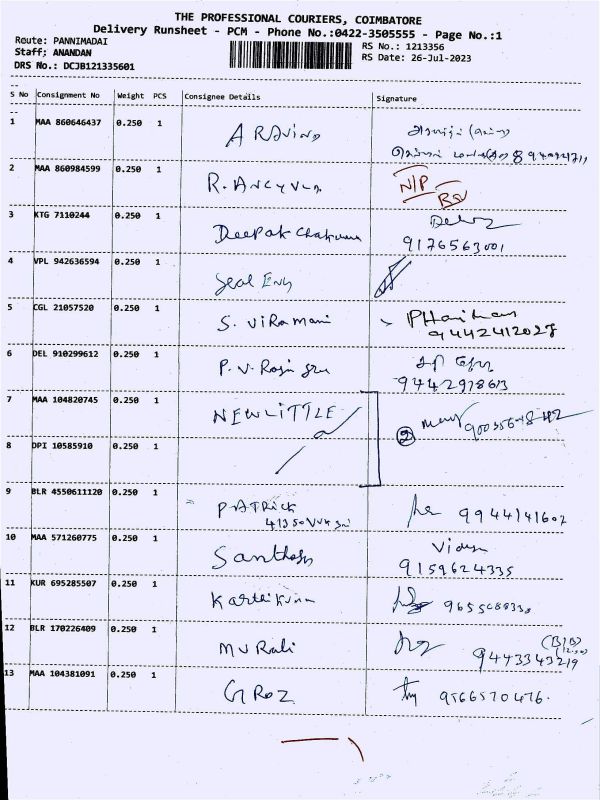 THE PROFESSIONAL COURIERS, COIMBATORE
Delivery Runsheet - PCM - Phone No.:0422-3505555 - Page No.:1
Route: PANNIMADAI
RS No.: 1213356
Staff; ANANDAN
RS Date: 26-Jul-2023
DRS No.: DCJB121335601
S No Consignment No Weight PCS Consignee Details Signature
1 MAA 860646437 0.250 1 ARavind
2 MAA 860984599 0.250 1 R. N/P
3 KTG 7110244 0.250 1 Deepak
9176563001
4 VPL 942636594 0.250 1 Seal Eng
5 CGL 21057520 0.250 1 S. Viramani
9442412027
6 DEL 910299612 0.250 1 P.V.
9442978613
7 MAA 104820745 0.250 1 NEWLITTLE
8 DPI 10585910 0.250 1 2
9 BLR 4550611120 0.250 1 PATRICK 9944141602
10 MAA 571260775 0.250 1 Santhosh
9159624335
11 KUR 695285507 0.250 1
12 BLR 170226409 0.250 1 MURali
9443343219
13 MAA 104381091 0.250 1 GROZ 9566570476.